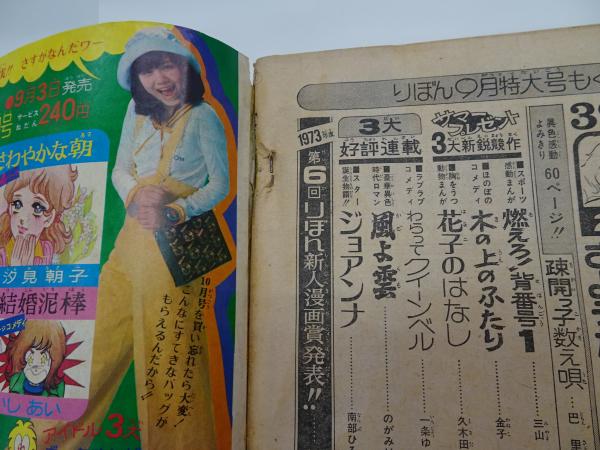 さすがなんだワー
●9月3日発売
サービスねだん 240円
さわやかな朝
汐見朝子
結婚泥棒
しあい
アイドル3大
10月号を買い忘れたら大変!
こんなにすてきなバッグが
もらえるんだから!!
りぼん9月特大号もく
異色感動よみきり 60ページ!!
疎開っ子数え唄 巴里
サマープレゼント
3大新鋭競作
■スポーツ感動まんが 燃えろ!背番号1 三山
■ほのぼのコメディ 木の上のふたり 金子
■胸をうつ動物まんが 花子のはなし 久木田
3大
好評連載
■ラブラブコメディ わらってクイーンベル 一条ゆ
■豪華異色時代ロマン 風よ雲 のがみけ
■スター誕生物語!! ジョアンナ 南部ひろ
1973年度
第6回りぼん新人漫画賞発表!!